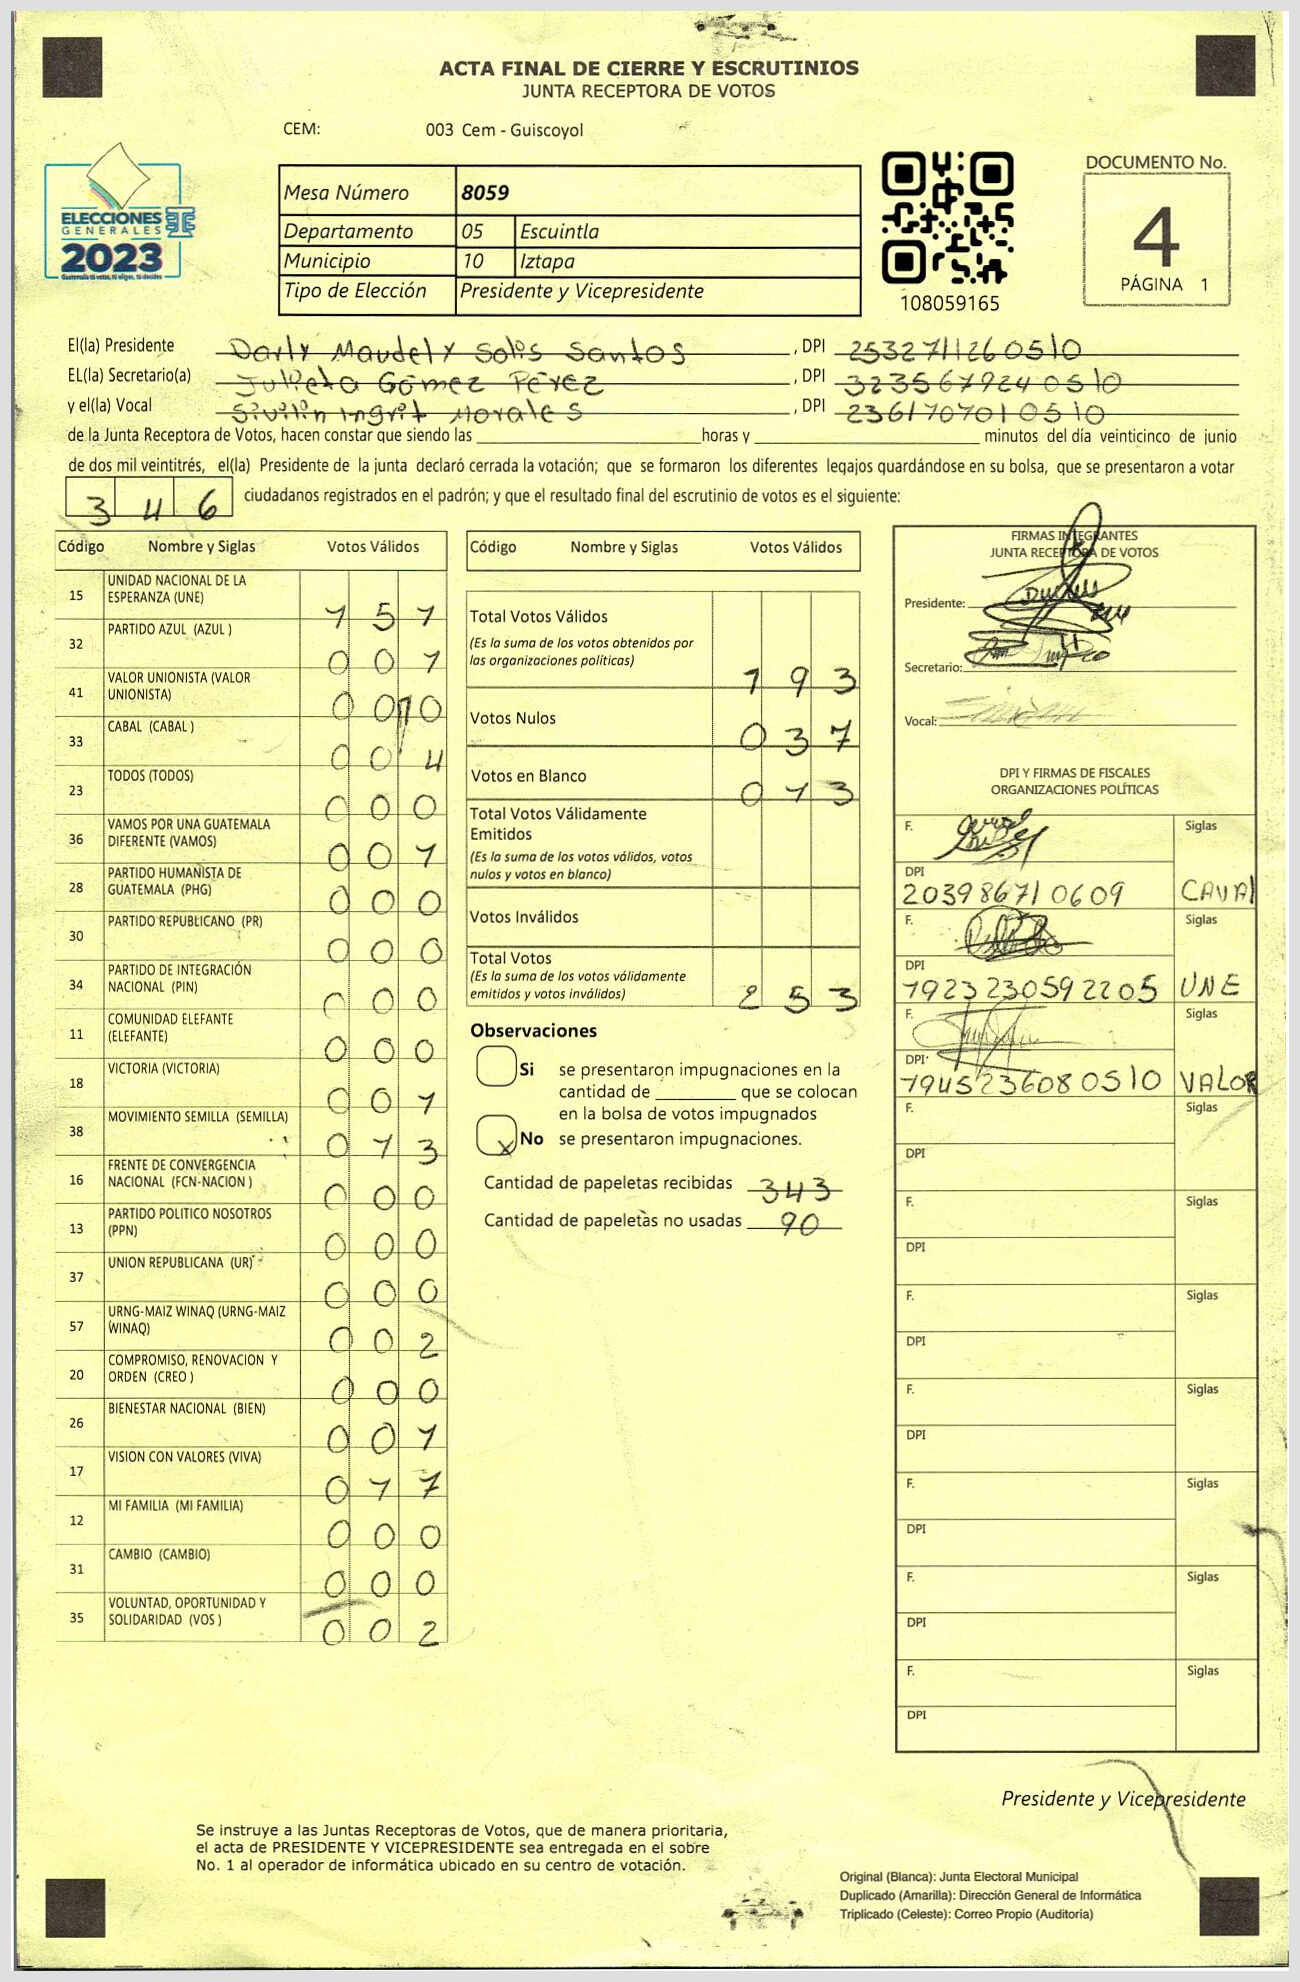 ACTA FINAL DE CIERRE Y ESCRUTINIOS
JUNTA RECEPTORA DE VOTOS
CEM: 003 Cem - Guiscoyol
ELECCIONES
GENERALES
2023
Guatemala tú votas, tú eliges, tú decides
Mesa Número 8059
Departamento 05 Escuintla
Municipio 10 Iztapa
Tipo de Elección Presidente y Vicepresidente
108059165
DOCUMENTO No.
4
PÁGINA 1
El(la) Presidente Darly Maudely Solis Santos, DPI 2532711260510
EL(la) Secretario(a) Julieta Gómez Pérez, DPI 3235679240510
y el(la) Vocal Sivilin Ingrit Morales, DPI 2361707010510
de la Junta Receptora de Votos, hacen constar que siendo las horas y minutos del día veinticinco de junio
de dos mil veintitrés, el(la) Presidente de la junta declaró cerrada la votación; que se formaron los diferentes legajos quardándose en su bolsa, que se presentaron a votar
346 ciudadanos registrados en el padrón; y que el resultado final del escrutinio de votos es el siguiente:
Código Nombre y Siglas Votos Válidos
15 UNIDAD NACIONAL DE LA ESPERANZA (UNE) 151
32 PARTIDO AZUL (AZUL ) 001
41 VALOR UNIONISTA (VALOR UNIONISTA)
33 CABAL (CABAL ) 004
23 TODOS (TODOS) 000
36 VAMOS POR UNA GUATEMALA DIFERENTE (VAMOS) 001
28 PARTIDO HUMANISTA DE GUATEMALA (PHG) 000
30 PARTIDO REPUBLICANO (PR) 000
34 PARTIDO DE INTEGRACIÓN NACIONAL (PIN) 000
11 COMUNIDAD ELEFANTE (ELEFANTE) 000
18 VICTORIA (VICTORIA) 001
38 MOVIMIENTO SEMILLA (SEMILLA) 013
16 FRENTE DE CONVERGENCIA NACIONAL (FCN-NACION ) 000
13 PARTIDO POLITICO NOSOTROS (PPN) 000
37 UNION REPUBLICANA (UR) 000
57 URNG-MAIZ WINAQ (URNG-MAIZ WINAQ) 002
20 COMPROMISO, RENOVACION Y ORDEN (CREO ) 000
26 BIENESTAR NACIONAL (BIEN) 001
17 VISION CON VALORES (VIVA)
12 MI FAMILIA (MI FAMILIA) 000
31 CAMBIO (CAMBIO) 000
35 VOLUNTAD, OPORTUNIDAD Y SOLIDARIDAD (VOS ) 002
Código Nombre y Siglas Votos Válidos
Total Votos Válidos 193
(Es la suma de los votos obtenidos por
las organizaciones políticas)
Votos Nulos 037
Votos en Blanco 013
Total Votos Válidamente
Emitidos
(Es la suma de los votos válidos, votos
nulos y votos en blanco)
Votos Inválidos
Total Votos 253
(Es la suma de los votos válidamente
emitidos y votos inválidos)
Observaciones
Si se presentaron impugnaciones en la
cantidad de que se colocan
en la bolsa de votos impugnados
x No se presentaron impugnaciones.
Cantidad de papeletas recibidas 343
Cantidad de papeletas no usadas 90
FIRMAS INTEGRANTES
JUNTA RECEPTORA DE VOTOS
Presidente:
Secretario:
Vocal:
DPI Y FIRMAS DE FISCALES
ORGANIZACIONES POLÍTICAS
F. Siglas
DPI
203986710609 CAVAl
F. Siglas
DPI
1923230592205 UNE
F. Siglas
DPI
1945236080510 VALOR
F. Siglas
DPI
F. Siglas
DPI
F. Siglas
DPI
F. Siglas
DPI
F. Siglas
DPI
F. Siglas
DPI
F. Siglas
DPI
Presidente y Vicepresidente
Se instruye a las Juntas Receptoras de Votos, que de manera prioritaria,
el acta de PRESIDENTE Y VICEPRESIDENTE sea entregada en el sobre
No. 1 al operador de informática ubicado en su centro de votación.
Original (Blanca): Junta Electoral Municipal
Duplicado (Amarilla): Dirección General de Informática
Triplicado (Celeste): Correo Propio (Auditoria)